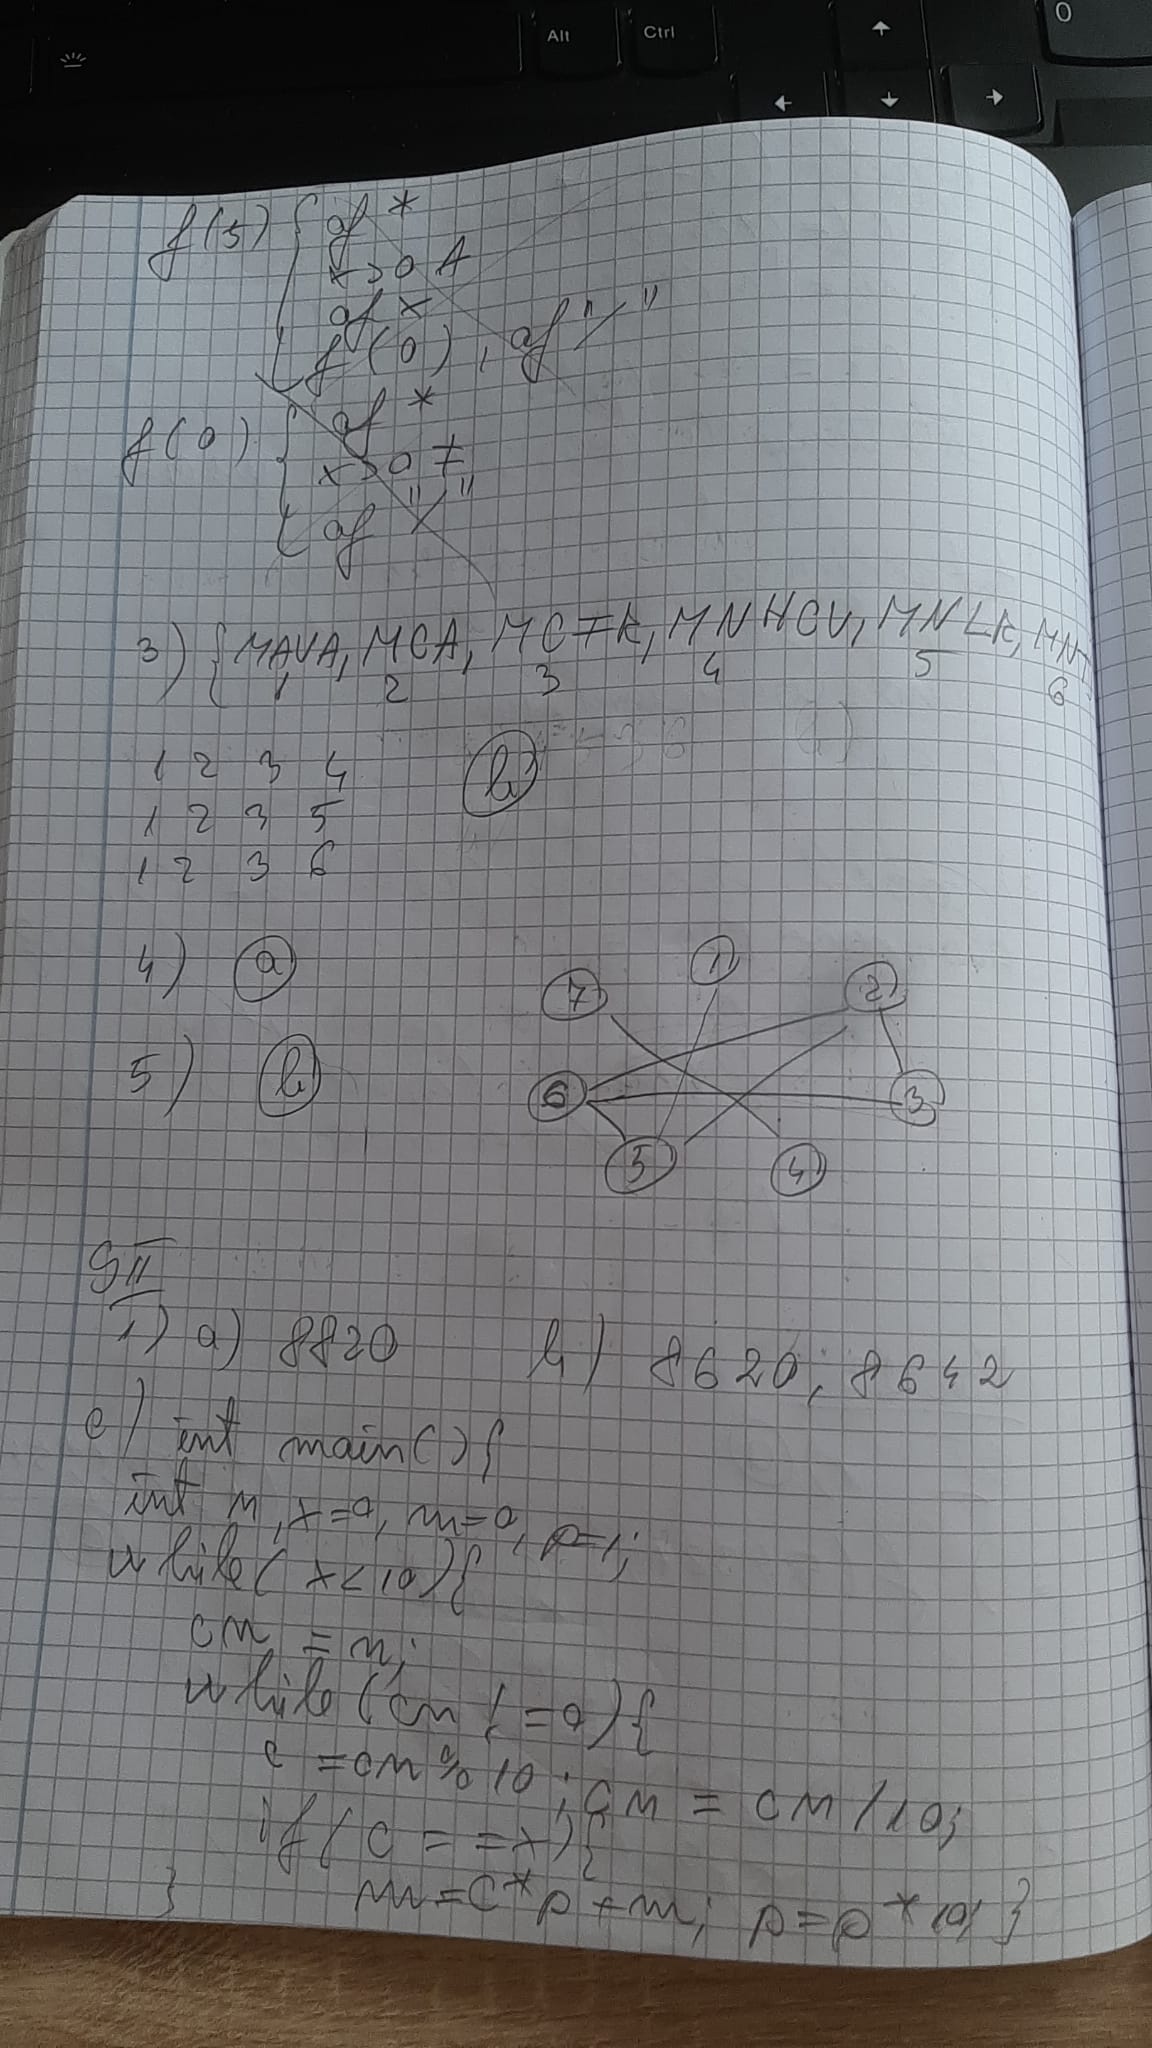 Alt
Ctrl
O
f(5) { af *
x>0 A
af x
f(0), af "/"
f(0) { af *
x>0 F
af "/"
3) { MAVA, MCA, MCIR, MNHCV, MNLR,
1 2 3 4 5 6
1 2 3 4 b
1 2 3 5
1 2 3 6
4) a
7 1 2
5) b
6 3
5 4
SII
1) a) 8820 b) 8620; 8642
c) int main(){
int n, x=0, m=0, p=1;
while( x<10){
cn = n;
while(cn != 0){
c = cn%10; cn = cn/10;
if( c = = x){
} m=c*p+m; p=p*10; }